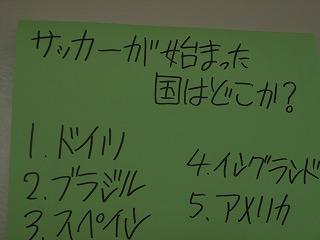 サッカーが始まった
国はどこか?
1. ドイツ
2. ブラジル
3. スペイン
4. イングランド
5. アメリカ